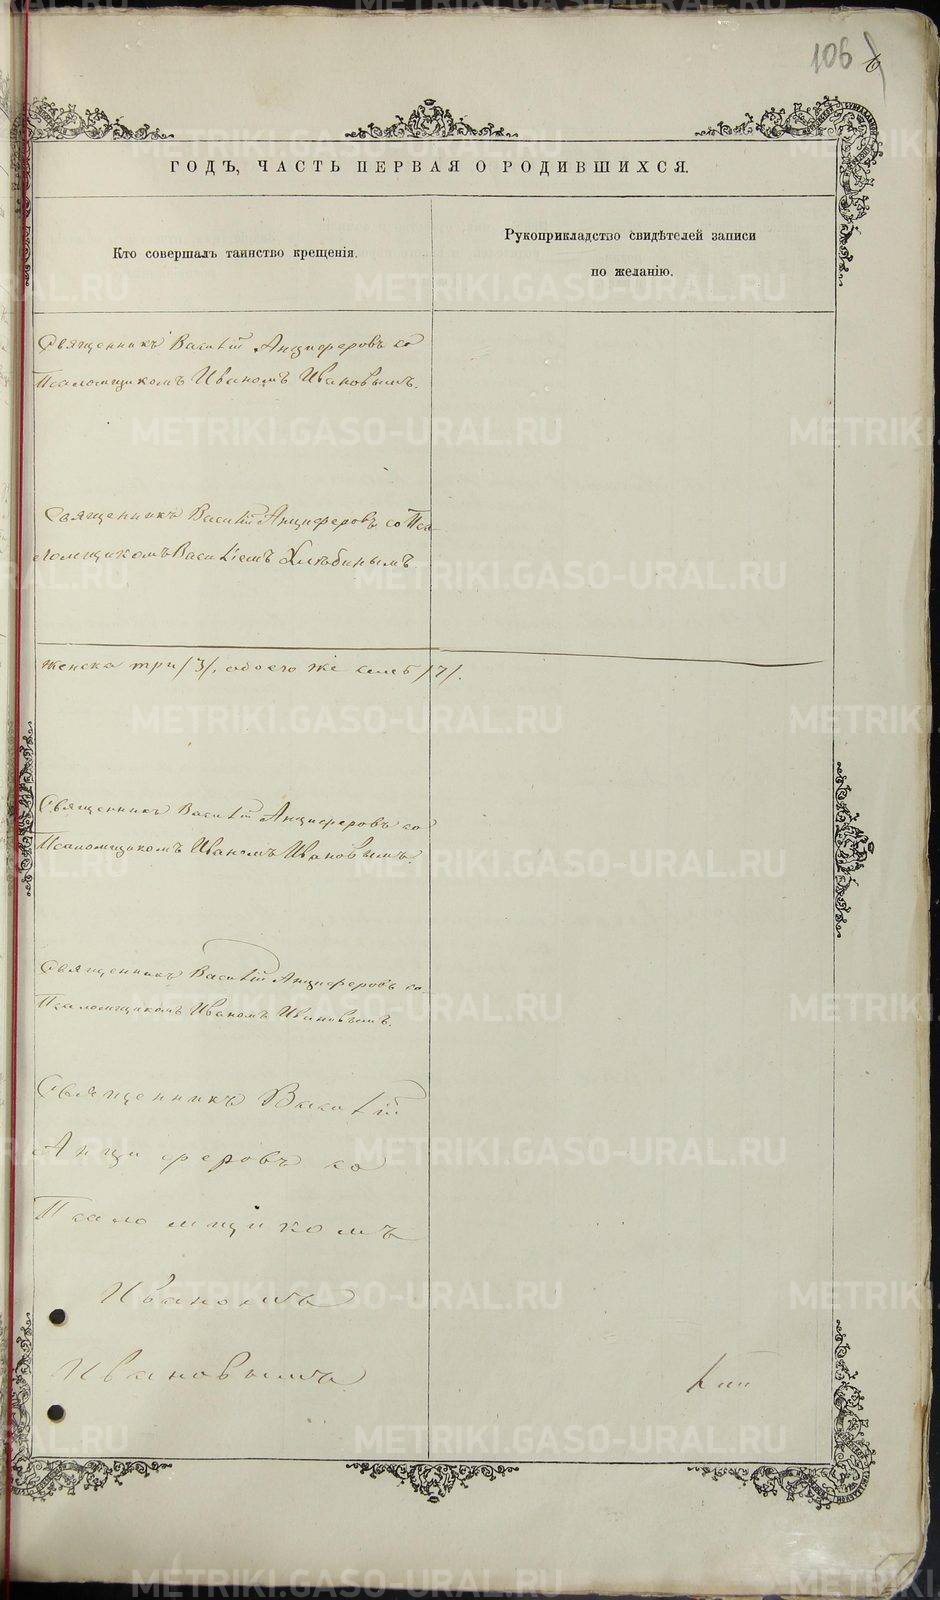 106
ГОДЪ, ЧАСТЬ ПЕРВАЯ О РОДИВШИХСЯ.
Кто совершалъ таинство крещенія.
Рукоприкладство свидѣтелей записи
по желанію.
Священникъ Василій Анциферовъ со
Псаломщикомъ Иваномъ Ивановымъ.
Священникъ Василій Анциферовъ со Пса-
ломщикомъ Василіемъ Хлѣбинымъ.
женска три /3/, обоего же семь /7/.
Священникъ Василій Анциферовъ со
Псаломщикомъ Иваномъ Ивановымъ
Священникъ Василій Анциферовъ со
Псаломщикомъ Иваномъ Ивановымъ.
Священникъ Василій
Анциферовъ со
Псаломщикомъ
Иваномъ
Ивановымъ
METRIKI.GASO-URAL.RU